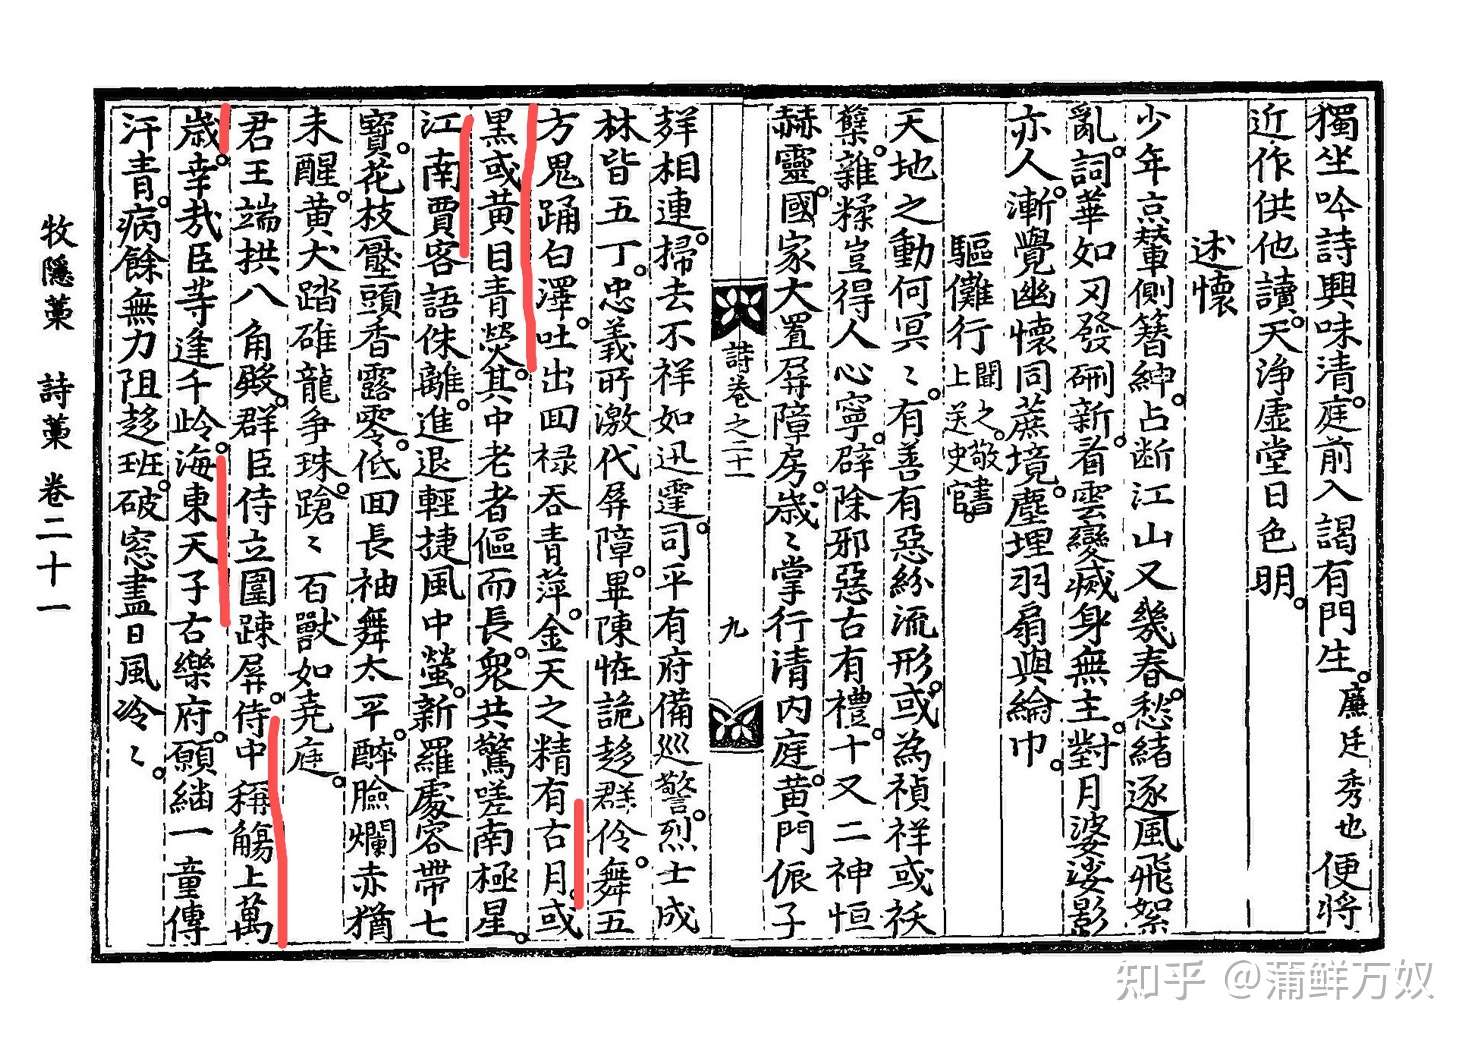 獨坐吟詩興味清。庭前入謁有門生。廉廷秀也便將
近作供他讀。天淨虛堂日色明。
述懷
少年京輦側簪紳。占断江山又幾春。愁緒逐風飛絮
亂。詞華如刃發硎新。看雲變滅身無主。對月婆娑影
亦人。漸覺幽懷同蔗境。塵埋羽扇與綸巾。
驅儺行上聞之。敬書送史官。
天地之動何冥〻。有善有惡紛流形。或為禎祥或祅
孽。雜糅豈得人心寧。辟除邪惡古有禮。十又二神恒
赫靈。國家大置屏障房。歲〻掌行清內庭。黄門侲子
詩卷之二十一
九
羣相連。掃去不祥如迅霆。司平有府備巡警。烈士成
林皆五丁。忠義所激代屏障。畢陳恠詭趍群伶。舞五
方鬼踊白澤。吐出回禄吞青萍。金天之精有古月。或
黒或黄目青熒。其中老者傴而長。衆共驚嗟南極星。
江南賈客語侏離。進退輕捷風中螢。新羅處容帶七
寳。花枝壓頭香露零。低回長袖舞太平。醉臉爛赤猶
未醒。黄犬踏碓龍争珠。蹌〻百獸如堯庭。
君王端拱八角殿。群臣侍立圍踈屏。侍中稱觴上萬
歲。幸㢤臣等逢千岭。海東天子古樂府。願繼一章傳
汗青。病餘無力阻趍班。破窓盡日風冷〻。
牧隱藁 詩藁 卷二十一
知乎 @蒲鲜万奴